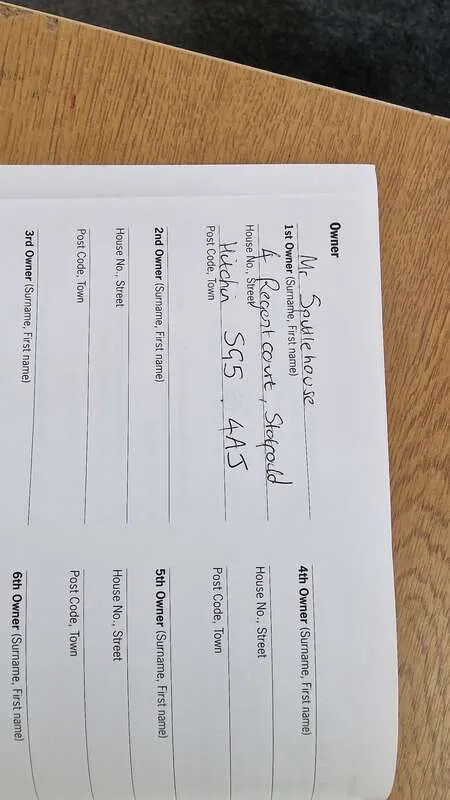 Owner
Mr Spittlehouse
1st Owner (Surname, First name)
4 Regent court, Stotfold
House No., Street
Hitchin SG5 4AJ
Post Code, Town
2nd Owner (Surname, First name)
House No., Street
Post Code, Town
3rd Owner (Surname, First name)
4th Owner (Surname, First name)
House No., Street
Post Code, Town
5th Owner (Surname, First name)
House No., Street
Post Code, Town
6th Owner (Surname, First name)